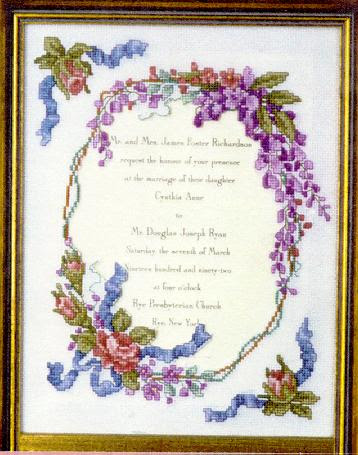 Mr. and Mrs. James Foster Richardson
request the honour of your presence
at the marriage of their daughter
Cynthia Anne
to
Mr. Douglas Joseph Ryan
Saturday, the seventh of March
Nineteen hundred and ninety-two
at four o'clock
Rye Presbyterian Church
Rye, New York